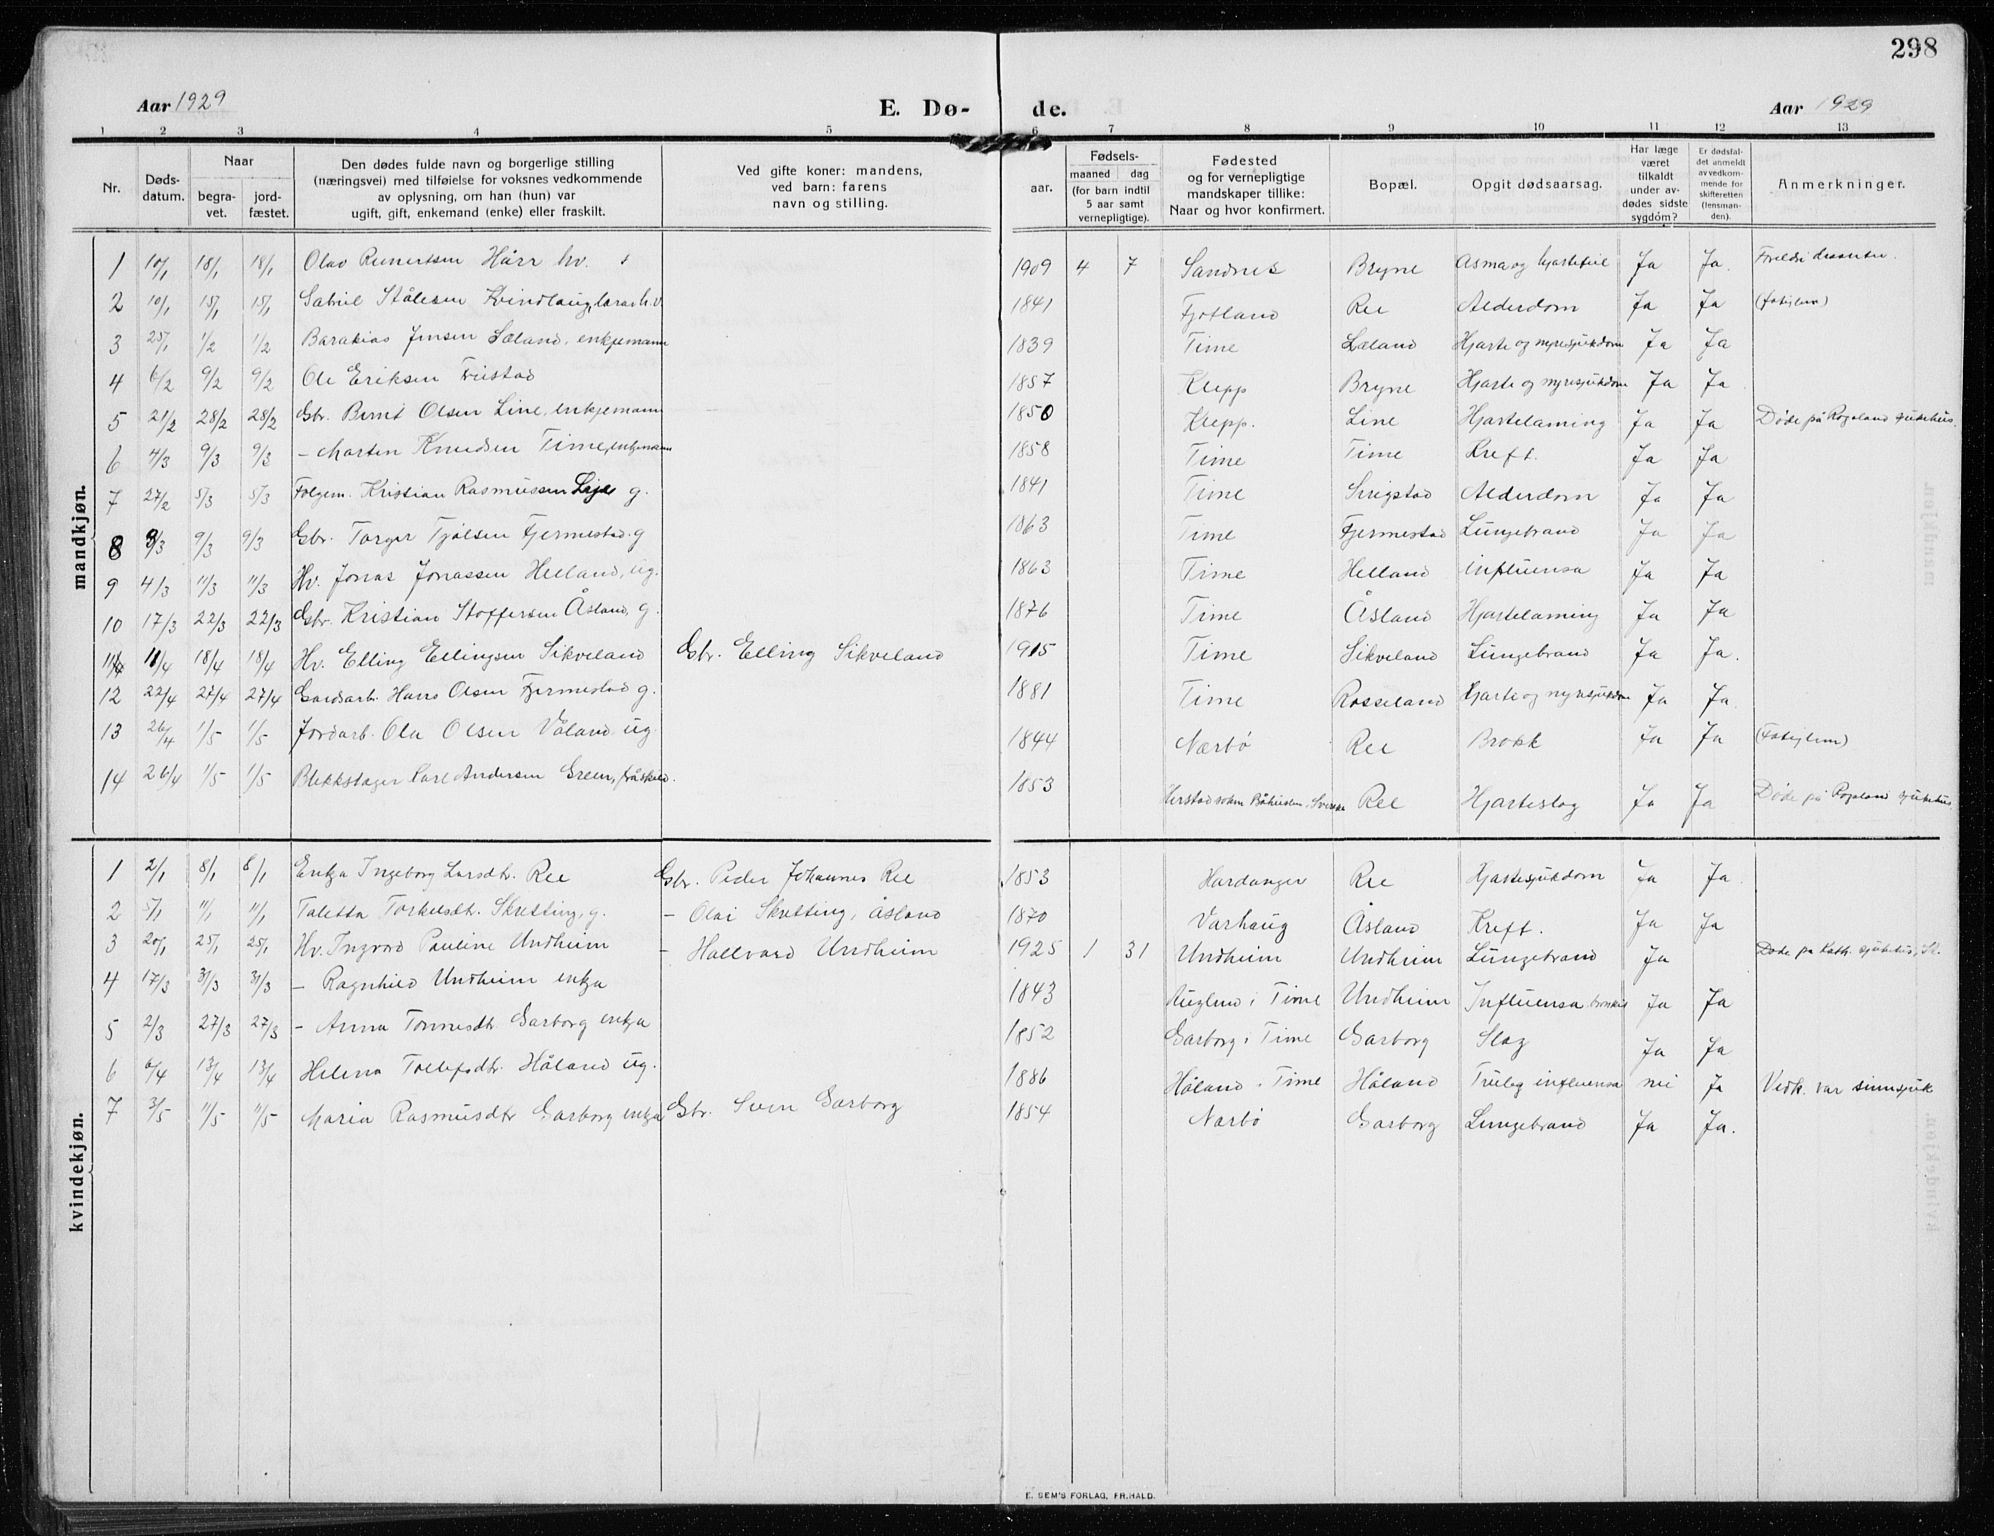 298
Aar 1929 E. Dø- de. Aar 1929
1 2 3 4 5 6 7 8 9 10 11 12 13
Nr.
Døds-
datum.
Naar
begra-
vet.
jord-
fæstet.
Den dødes fulde navn og borgerlige stilling
(næringsvei) med tilføielse for voksnes vedkommende
av oplysning, om han (hun) var
ugift, gift, enkemand (enke) eller fraskilt.
Ved gifte koner: mandens,
ved barn: farens
navn og stilling.
Fødsels-
aar.
maaned dag
(for barn indtil
5 aar samt
vernepligtige).
Fødested
og for vernepligtige
mandskaper tillike:
Naar og hvor konfirmert.
Bopæl.
Opgit dødsaarsag.
Har læge
været
tilkaldt
under av-
dødes sidste
sygdom?
Er dødsfal-
det anmeldt
av vedkom-
mende for
skifteretten
(lensman-
den).
Anmerkninger.
mandkjøn.
1 10/1 18/1 18/1 Olav Reinertsen Hårr hv. 1909 4 7 Sandnes Bryne Asma og hjartefeil Ja Ja.
2 10/1 15/1 15/1 Sakul Stålesen Kvindlaug, 1841 Fjotland Ree Alderdom Ja Ja
3 25/1 1/2 1/2 Barakias Jensen Læland, enkjemann 1839 Time Læland Hjarte og nyresjukdom Ja Ja
4 6/2 9/2 9/2 Ole Eriksen Frøstad 1857 Klepp Bryne Hjarte og nyresjukdom Ja Ja
5 21/2 28/2 28/2 Gbr. Bernt Olsen Line, enkjemann 1850 Klepp. Line Hjartelaming Ja Ja Døde på Rogaland sjukehus.
6 4/3 9/3 9/3 – Morten Knudsen Time, enkjemann 1858 Time Time Kreft. Ja Ja
7 27/2 5/3 5/3 Folgem. Kristian Rasmussen Lye g. 1841 Time Sirigstad Alderdom Ja Ja
8 3/3 9/3 9/3 Gbr. Torger Tjølsen Fjermestad g 1863 Time Fjermestad Lungebrand Ja Ja
9 4/3 11/3 11/3 Hv. Jonas Jonassen Helland, ug. 1863 Time Helland Influensa Ja Ja
10 17/3 22/3 22/3 Gbr. Kristian Stoffersen Åsland, g. 1876 Time Åsland Hjartelaming Ja Ja
11 11/4 18/4 18/4 Hv. Elling Ellingsen Sikveland Gbr. Elling Sikveland 1915 Time Sikveland Lungebrand Ja Ja.
12 22/4 27/4 27/4 Gardsarb. Hans Olsen Fjermestad g. 1881 Time Rosseland Hjarte og nyresjukdom Ja Ja.
13 26/4 1/5 1/5 Jordarb. Ola Olsen Våland, ug. 1844 Nærbø Ree Brokk Ja Ja
14 26/4 1/5 1/5 Blekkslager Carl Andersen Green, fråskild. 1853 sokn Båhuslen, Sverike Ree Hjarteslag Ja Ja Døde på Rogaland sjukehus
kvindekjøn.
1 2/1 8/1 8/1 Enkja Ingeborg Larsdtr. Ree Gbr. Peder Johannes Ree 1853 Hardanger Ree Hjartesjukdom Ja Ja.
2 5/1 11/1 11/1 Taletta Torkelsdtr. Skretting, g. – Olai Skretting, Åsland 1870 Varhaug Åsland Kreft. Ja Ja
3 20/1 25/1 25/1 Hv. Ingvard Pauline Undheim – Hallvard Undheim 1925 1 31 Undheim Undheim Lungebrand Ja Døde på Kath. sjukehus, St.
4 17/3 31/3 31/3 – Ragnhild Undheim enkja 1843 Auglend i Time Undheim Influensa bronkit Ja Ja
5 2/3 27/3 27/3 – Anna Tønnesdtr. Garborg enkja 1852 Garborg i Time Garborg Slag Ja Ja
6 6/4 13/4 13/4 Helena Tollefsdtr. Håland ug. 1886 Håland i Time Håland Truleg influensa nei Ja Vedk. var sinnsjuk
7 3/5 11/5 11/5 Maria Rasmusdtr Garborg enkja Gbr. Sven Garborg 1854 Nærbø Garborg Lungebrand Ja Ja.
E. SEM'S FORLAG, FR.HALD.